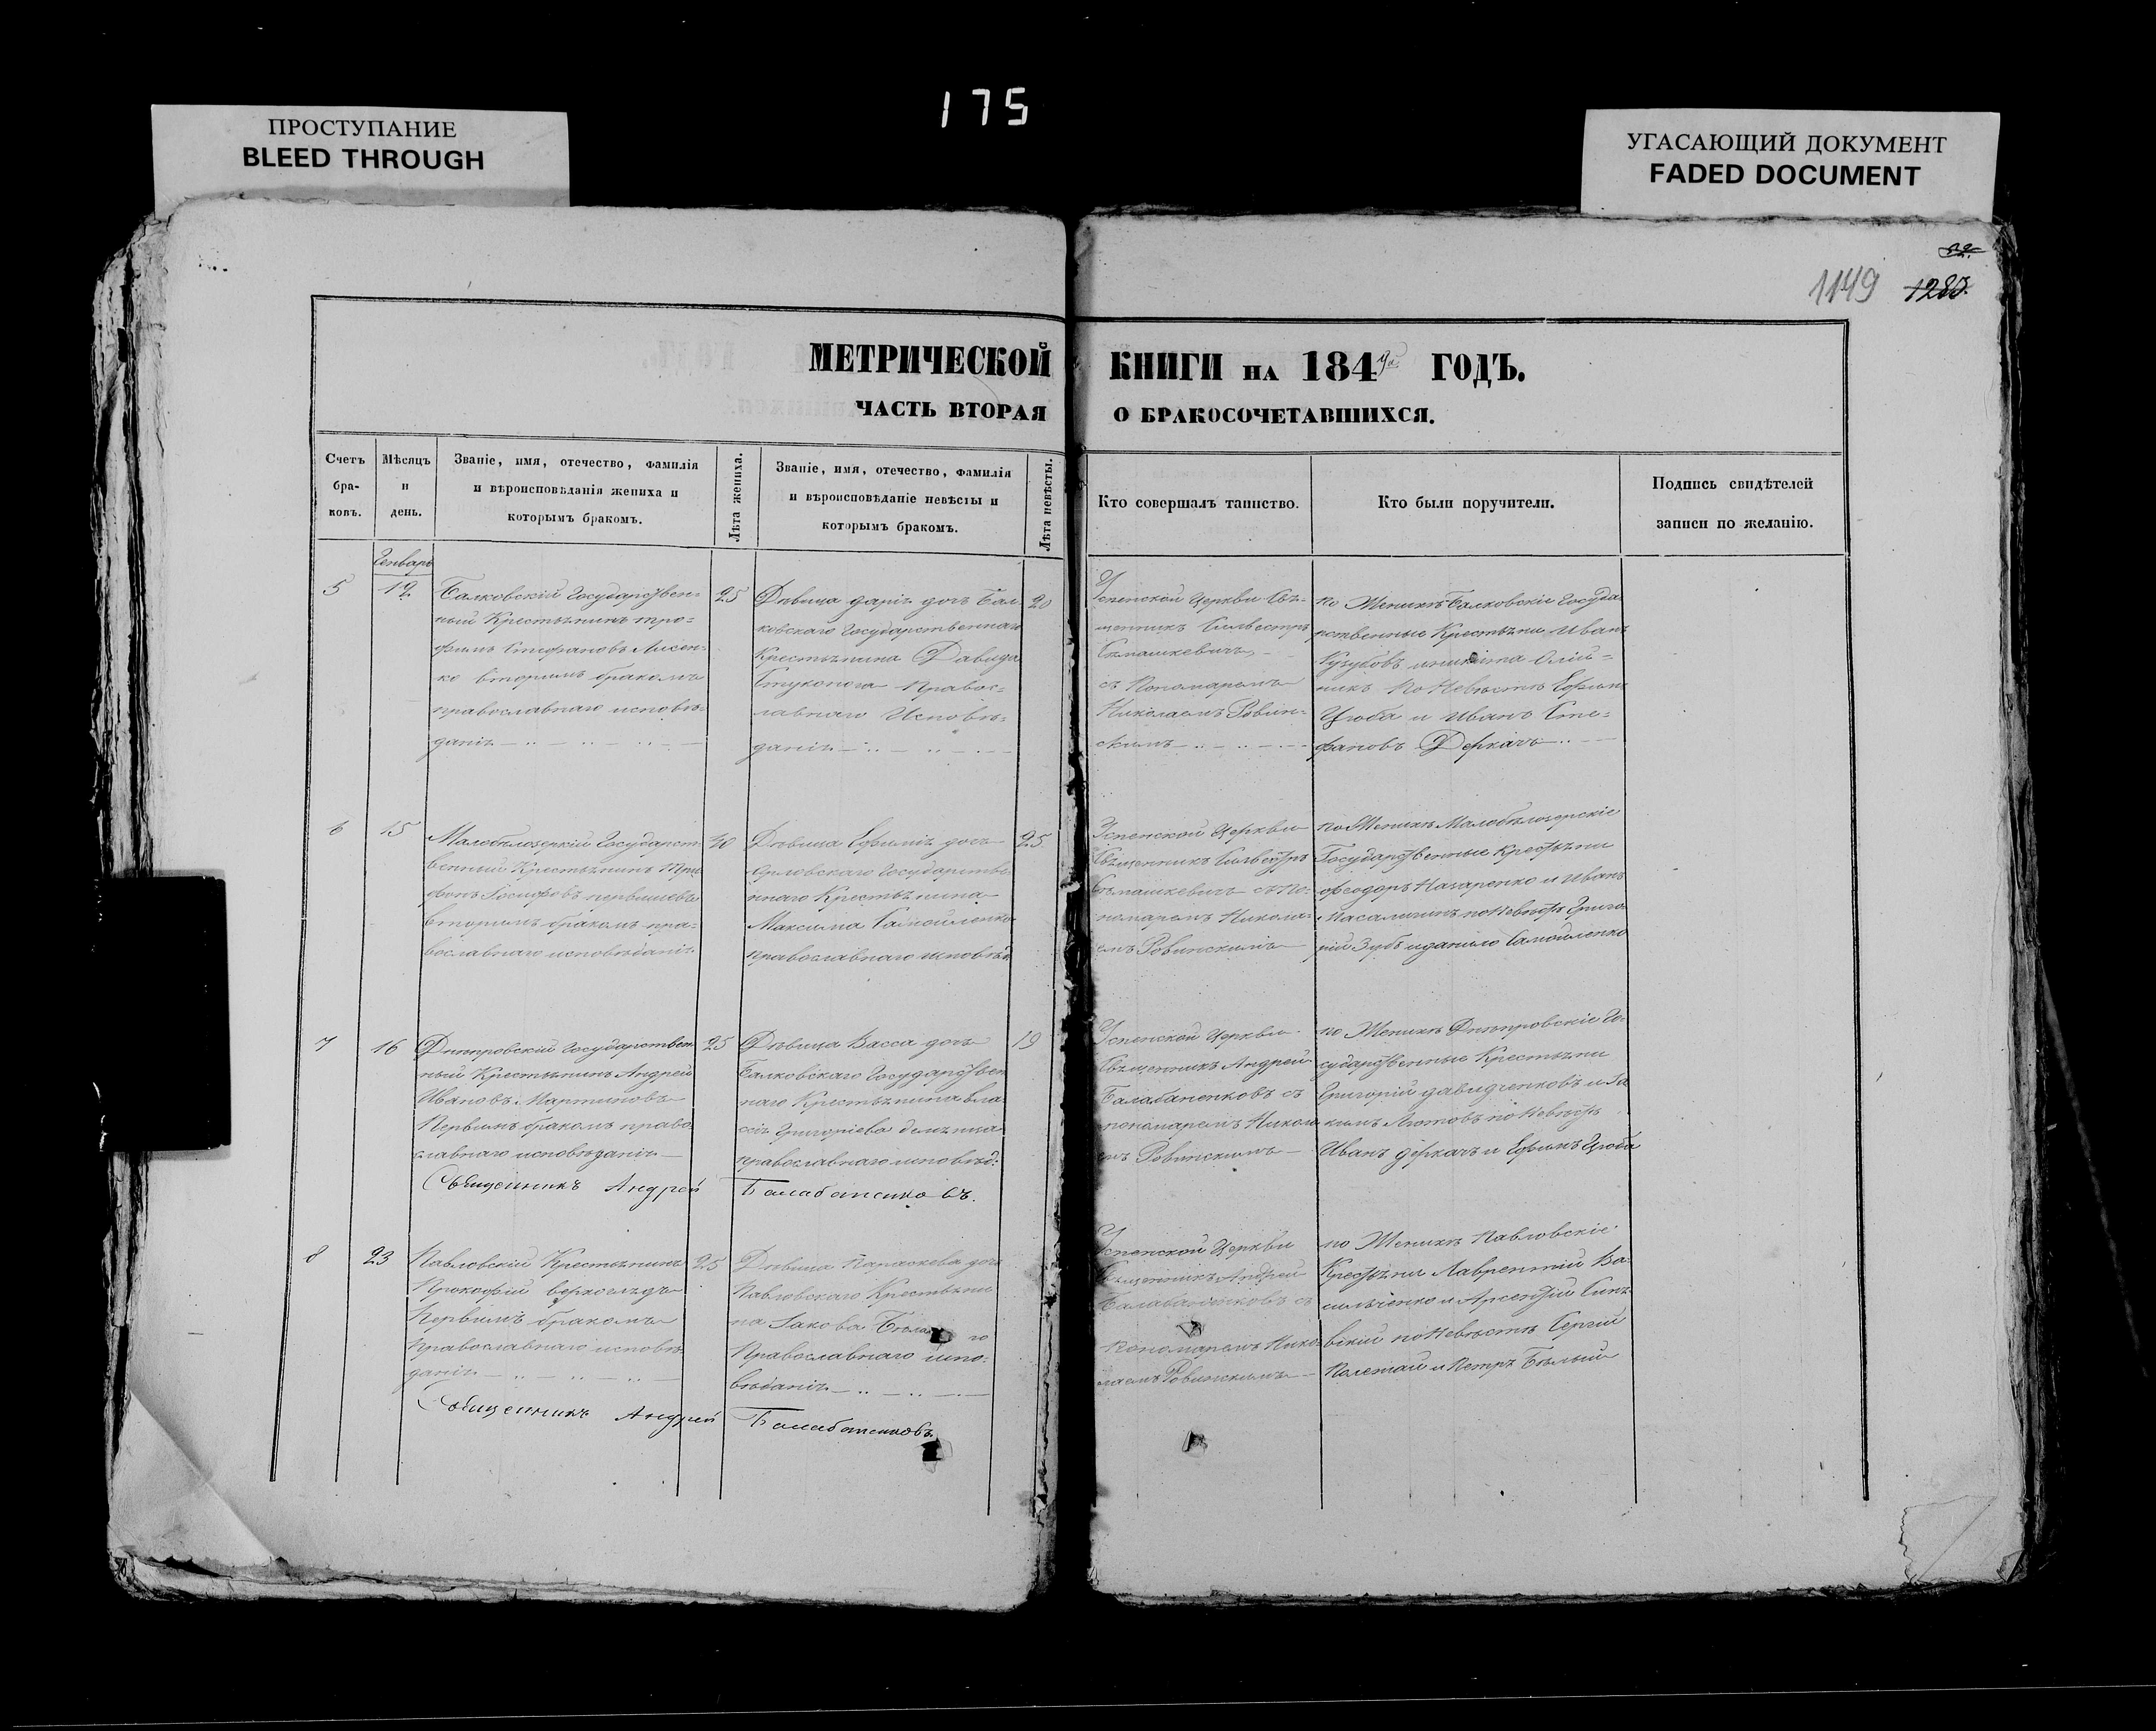 175
ПРОСТУПАНИЕ
BLEED THROUGH
УГАСАЮЩИЙ ДОКУМЕНТ
FADED DOCUMENT
1149
МЕТРИЧЕСКОЙ КНИГИ НА 184 ГОДЪ.
ЧАСТЬ ВТОРАЯ О БРАКОСОЧЕТАВШИХСЯ.
Счетъ бра- ковъ.
Мѣсяцъ и день.
Званіе, имя, отечество, фамилія
и вѣроисповѣданія жениха и
которымъ бракомъ.
Лѣта жениха.
Званіе, имя, отечество, фамилія
и вѣроисповѣданіе невѣсты и
которымъ бракомъ.
Лѣта невѣсты.
Кто совершалъ таинство.
Кто были поручители.
Подпись свидѣтелей
записи по желанію.
5
Балковскій Государствен-
ный Крестьянинъ Тро-
фимъ Стефановъ Лисен-
ко вторымъ бракомъ
православнаго исповѣ-
данія
25
Дѣвица Дарія дочь Бал-
ковскаго Государственнаго
Крестьянина Давида
правос-
лавнаго Исповѣ-
данія
20
Успенской Церкви Свя-
щенникъ Сильвестръ
съ Пономаремъ
Николаемъ Ровин-
скимъ
по Женихѣ Балковскіе Госуда
рственные Крестьяни Иванъ
никъ по Невѣстѣ Ефимъ
Цюба и Иванъ Сте-
фановъ Деркачъ
6
15
Малобѣлозеркій Государст
венный Крестьянинъ
вторымъ бракомъ пра-
вославнаго исповѣданія
40
Дѣвица Ефимія дочь
Орловскаго Государстве
ннаго Крестьянина
Максима Самойленко
православнаго исповѣд
25
Успенской Церкви
Священникъ Сильвестръ
съ По-
номаремъ Никола-
емъ Ровинскимъ
по Женихѣ Малобѣлозерскіе
Государственные Крестьяни
Феодоръ Назаренко и Иванъ
по Невѣстѣ Григо-
рій Зубъ и Данило Самойленко
7
16
Днѣпровскій Государствен
ный Крестьянинъ Андрей
Ивановъ Мартиновъ
Первымъ бракомъ право
славнаго исповѣданія
25
Дѣвица Васса дочь
Балковскаго Государствен
наго Крестьянина Вла
сія Григоріева
православнаго исповѣд:
19
Священникъ Андрей Балабаненковъ.
Успенской Церкви
Священникъ Андрей
Балабаненковъ съ
пономаремъ Никола
емъ Ровинскимъ
по Женихѣ Днѣпровскіе Го-
сударственные Крестьяни
Григорій Давидченковъ и
по Невѣстѣ
Иванъ Деркачъ и Ефимъ Цюба
8
23
Павловскій Крестьянинъ
Прокофій
Первымъ бракомъ
Православнаго исповѣ
данія
25
Дѣвица Параскева дочь
Павловскаго Крестьяни
на Іакова
Православнаго испо-
вѣданія
Священникъ Андрей Балабаненковъ.
Успенской Церкви
Священникъ Андрей
Балабаненковъ съ
Пономаремъ Нико-
лаемъ Ровинскимъ
по Женихѣ Павловскіе
Крестьяни Лаврентій Ва-
сильченко и Арсентій
по Невѣстѣ Сергій
и Петръ Бѣлый